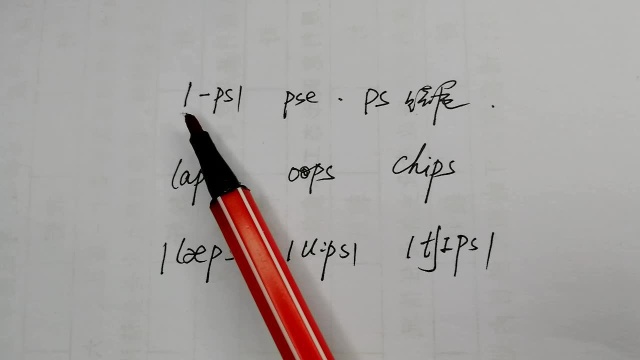 |-ps| pse . ps 结尾 .
oops chips
|u:ps| |tʃɪps|